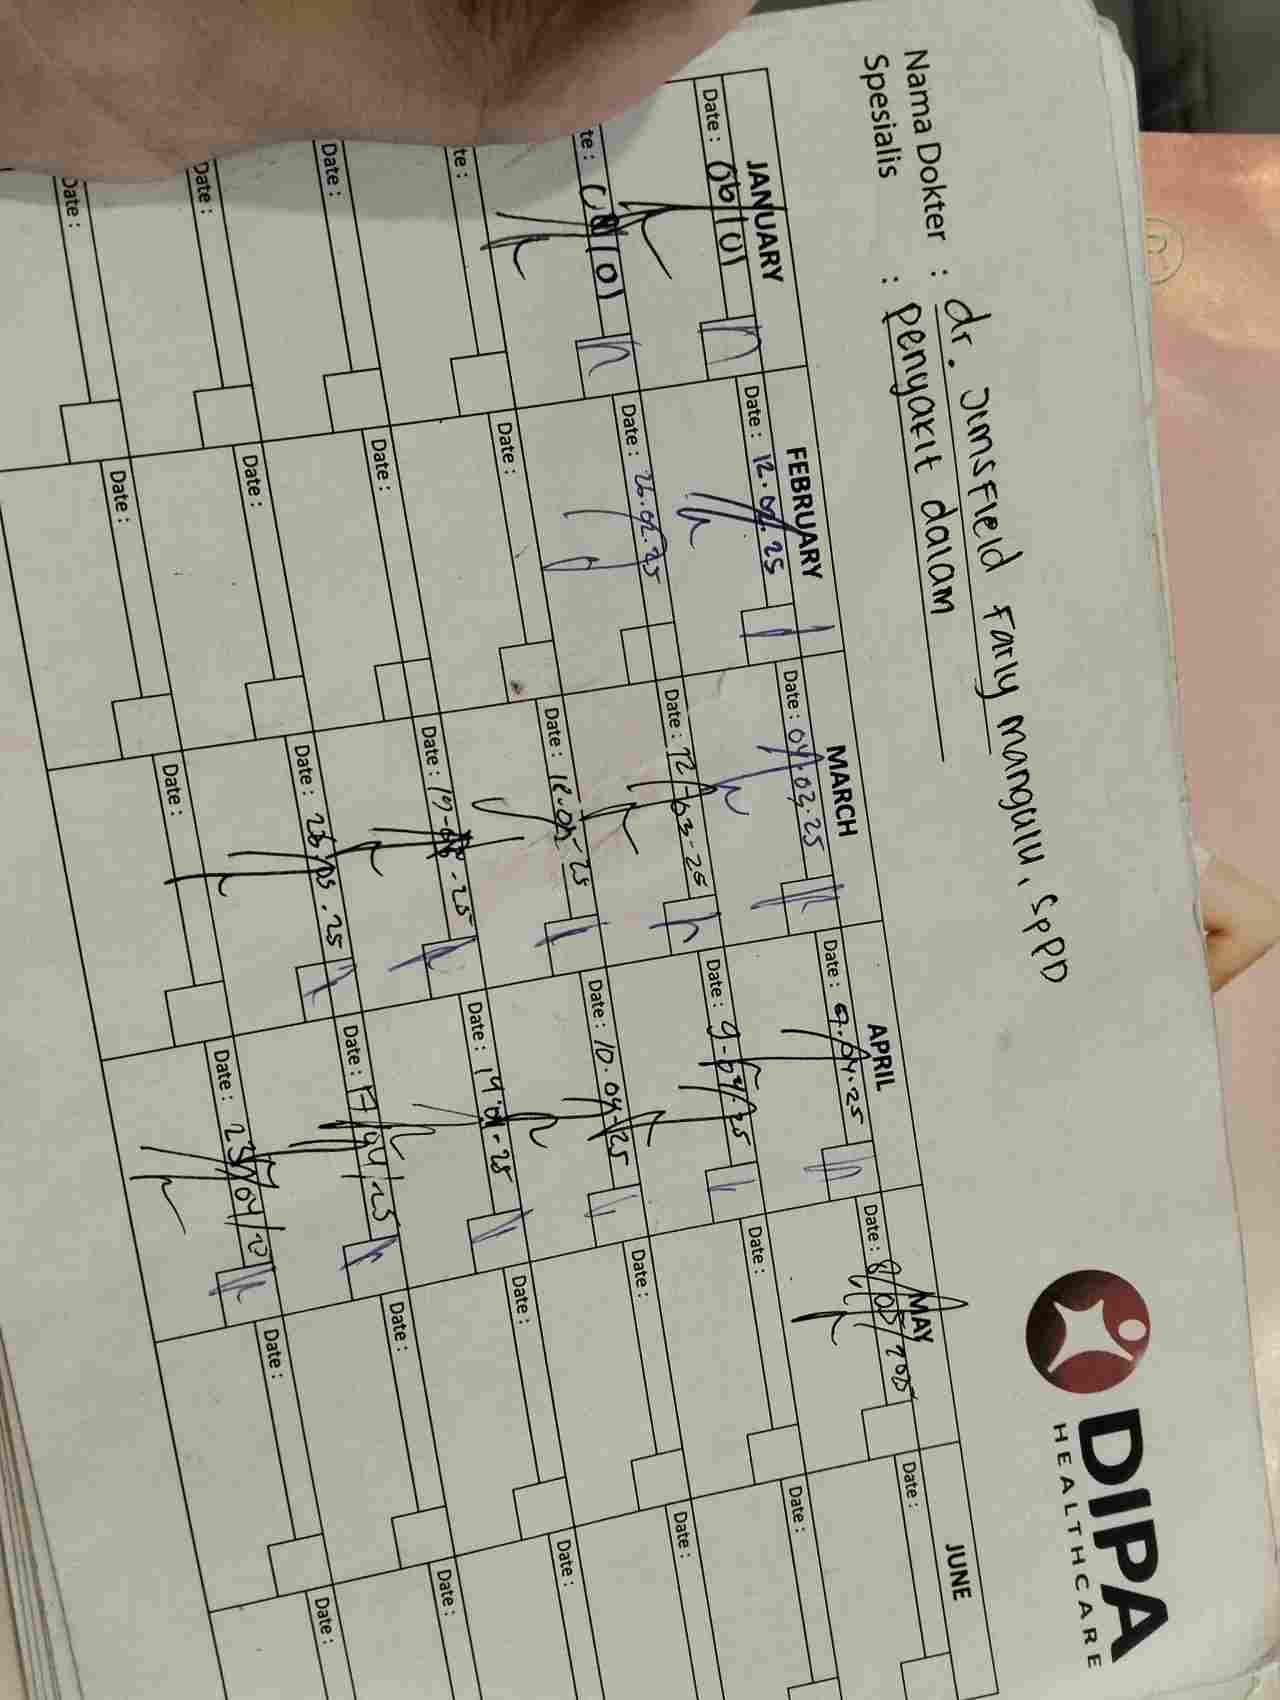 DIPA
HEALTHCARE
Nama Dokter : dr. Jimsfield Farly mangalu, SpPD
Spesialis : penyakit dalam
JANUARY FEBRUARY MARCH APRIL MAY JUNE
Date : 06/01 Date : 12.02.25 Date : 04.03.25 Date : 04.25 Date : 8/05/2025 Date :
te : /01 Date : 26.02.25 Date : 12-03-25 Date : 9-04-25 Date : Date :
te : Date : Date : 12-03-25 Date : 10.04-25 Date : Date :
Date : Date : Date : 19-03-25 Date : 14.04-25 Date : Date :
Date : Date : Date : 03.25 Date : 17/04/25 Date : Date :
Date : Date : Date : Date : 23/04/2 Date : Date :